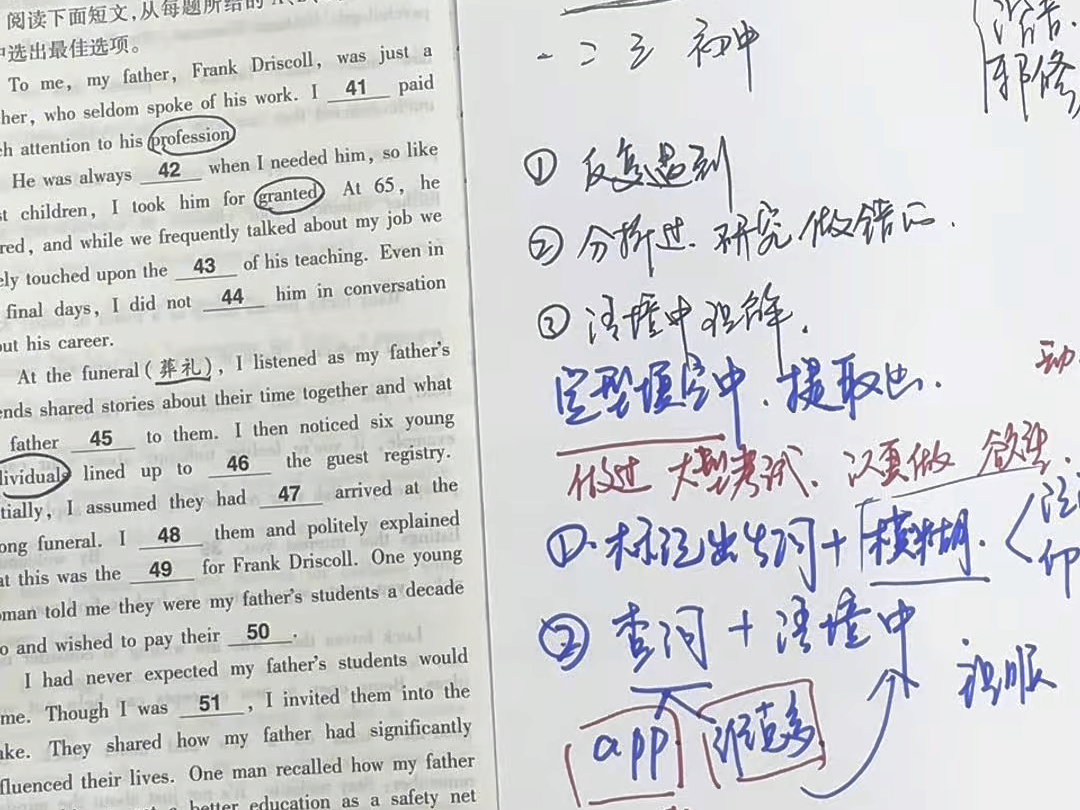 阅读下面短文,从每题所给的
中选出最佳选项。
To me, my father, Frank Driscoll, was just a
her, who seldom spoke of his work. I 41 paid
ch attention to his profession
He was always 42 when I needed him, so like
st children, I took him for granted. At 65, he
red, and while we frequently talked about my job we
ely touched upon the 43 of his teaching. Even in
final days, I did not 44 him in conversation
out his career.
At the funeral (葬礼), I listened as my father's
ends shared stories about their time together and what
father 45 to them. I then noticed six young
dividuals lined up to 46 the guest registry.
tially, I assumed they had 47 arrived at the
ong funeral. I 48 them and politely explained
at this was the 49 for Frank Driscoll. One young
oman told me they were my father's students a decade
o and wished to pay their 50 .
I had never expected my father's students would
me. Though I was 51 , I invited them into the
ake. They shared how my father had significantly
fluenced their lives. One man recalled how my father
better education as a safety net
一 二 三 初中
① 反复遇到
② 分析过. 研究 做错
③ 语境中
完型填空中. 提取出.
做过 大型考试.
①. 标记出生词 + 模糊.
② 查词 + 语境中
app